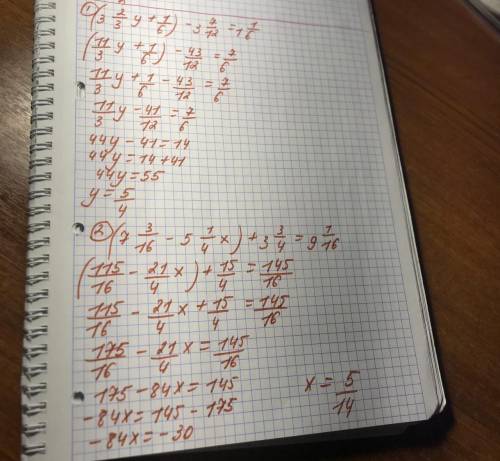 ① (3 2/3 y + 1/6) - 3 7/12 = 1 1/6
(11/3 y + 1/6) - 43/12 = 7/6
11/3 y + 1/6 - 43/12 = 7/6
11/3 y - 41/12 = 7/6
44y - 41 = 14
44y = 14 + 41
44y = 55
y = 5/4
② (7 3/16 - 5 1/4 x) + 3 3/4 = 9 1/16
(115/16 - 21/4 x) + 15/4 = 145/16
115/16 - 21/4 x + 15/4 = 145/16
175/16 - 21/4 x = 145/16
175 - 84x = 145
-84x = 145 - 175
-84x = -30
x = 5/14